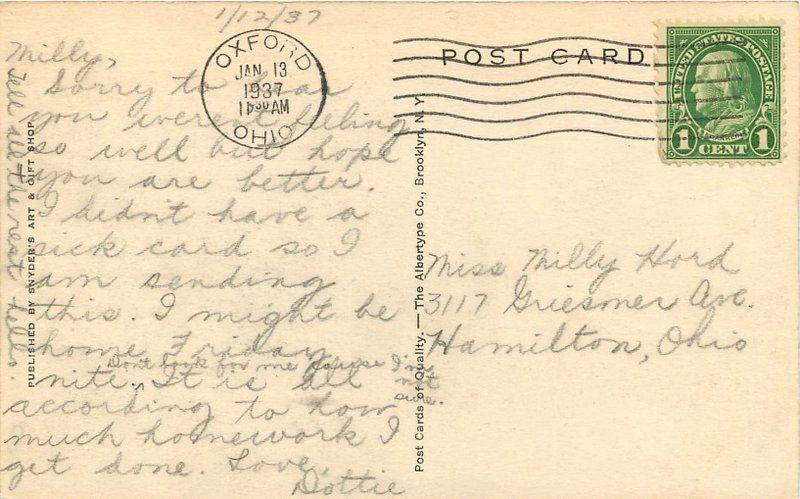 1/12/37
Milly,
Sorry to hear
you weren't feeling
so well but hope
you are better.
I didn't have a
sick card so I
am sending
this. I might be
home Friday
Don't look for me because I'm
not
sure.
nite. It is all
according to how
much homework I
get done. Love,
Dottie
Tell all the rest hello.
PUBLISHED BY SNYDER'S ART & GIFT SHOP
OXFORD
JAN 13
1937
11 30 AM
OHIO
POST CARD
UNITED STATES POSTAGE
FRANKLIN
1 CENT 1
Post Cards of Quality. — The Albertype Co., Brooklyn, N. Y.
Miss Milly Hord
3117 Griesmer Ave.
Hamilton, Ohio